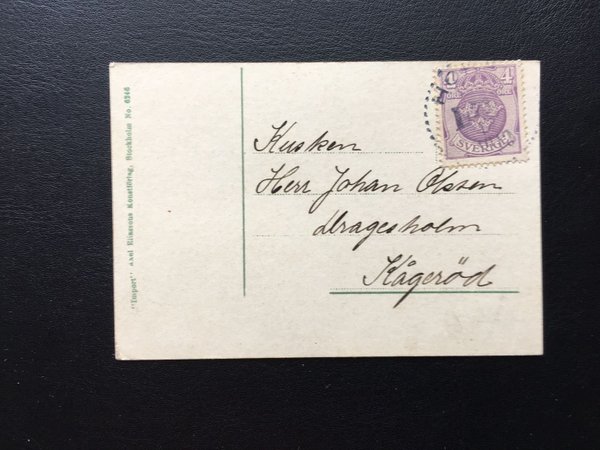 "Import" Axel Eliassons Konstförlag, Stockholm No. 6246
4 4
ÖRE ÖRE
SVERIGE
Kusken
Herr Johan Olsson
Dragesholm
Kågeröd